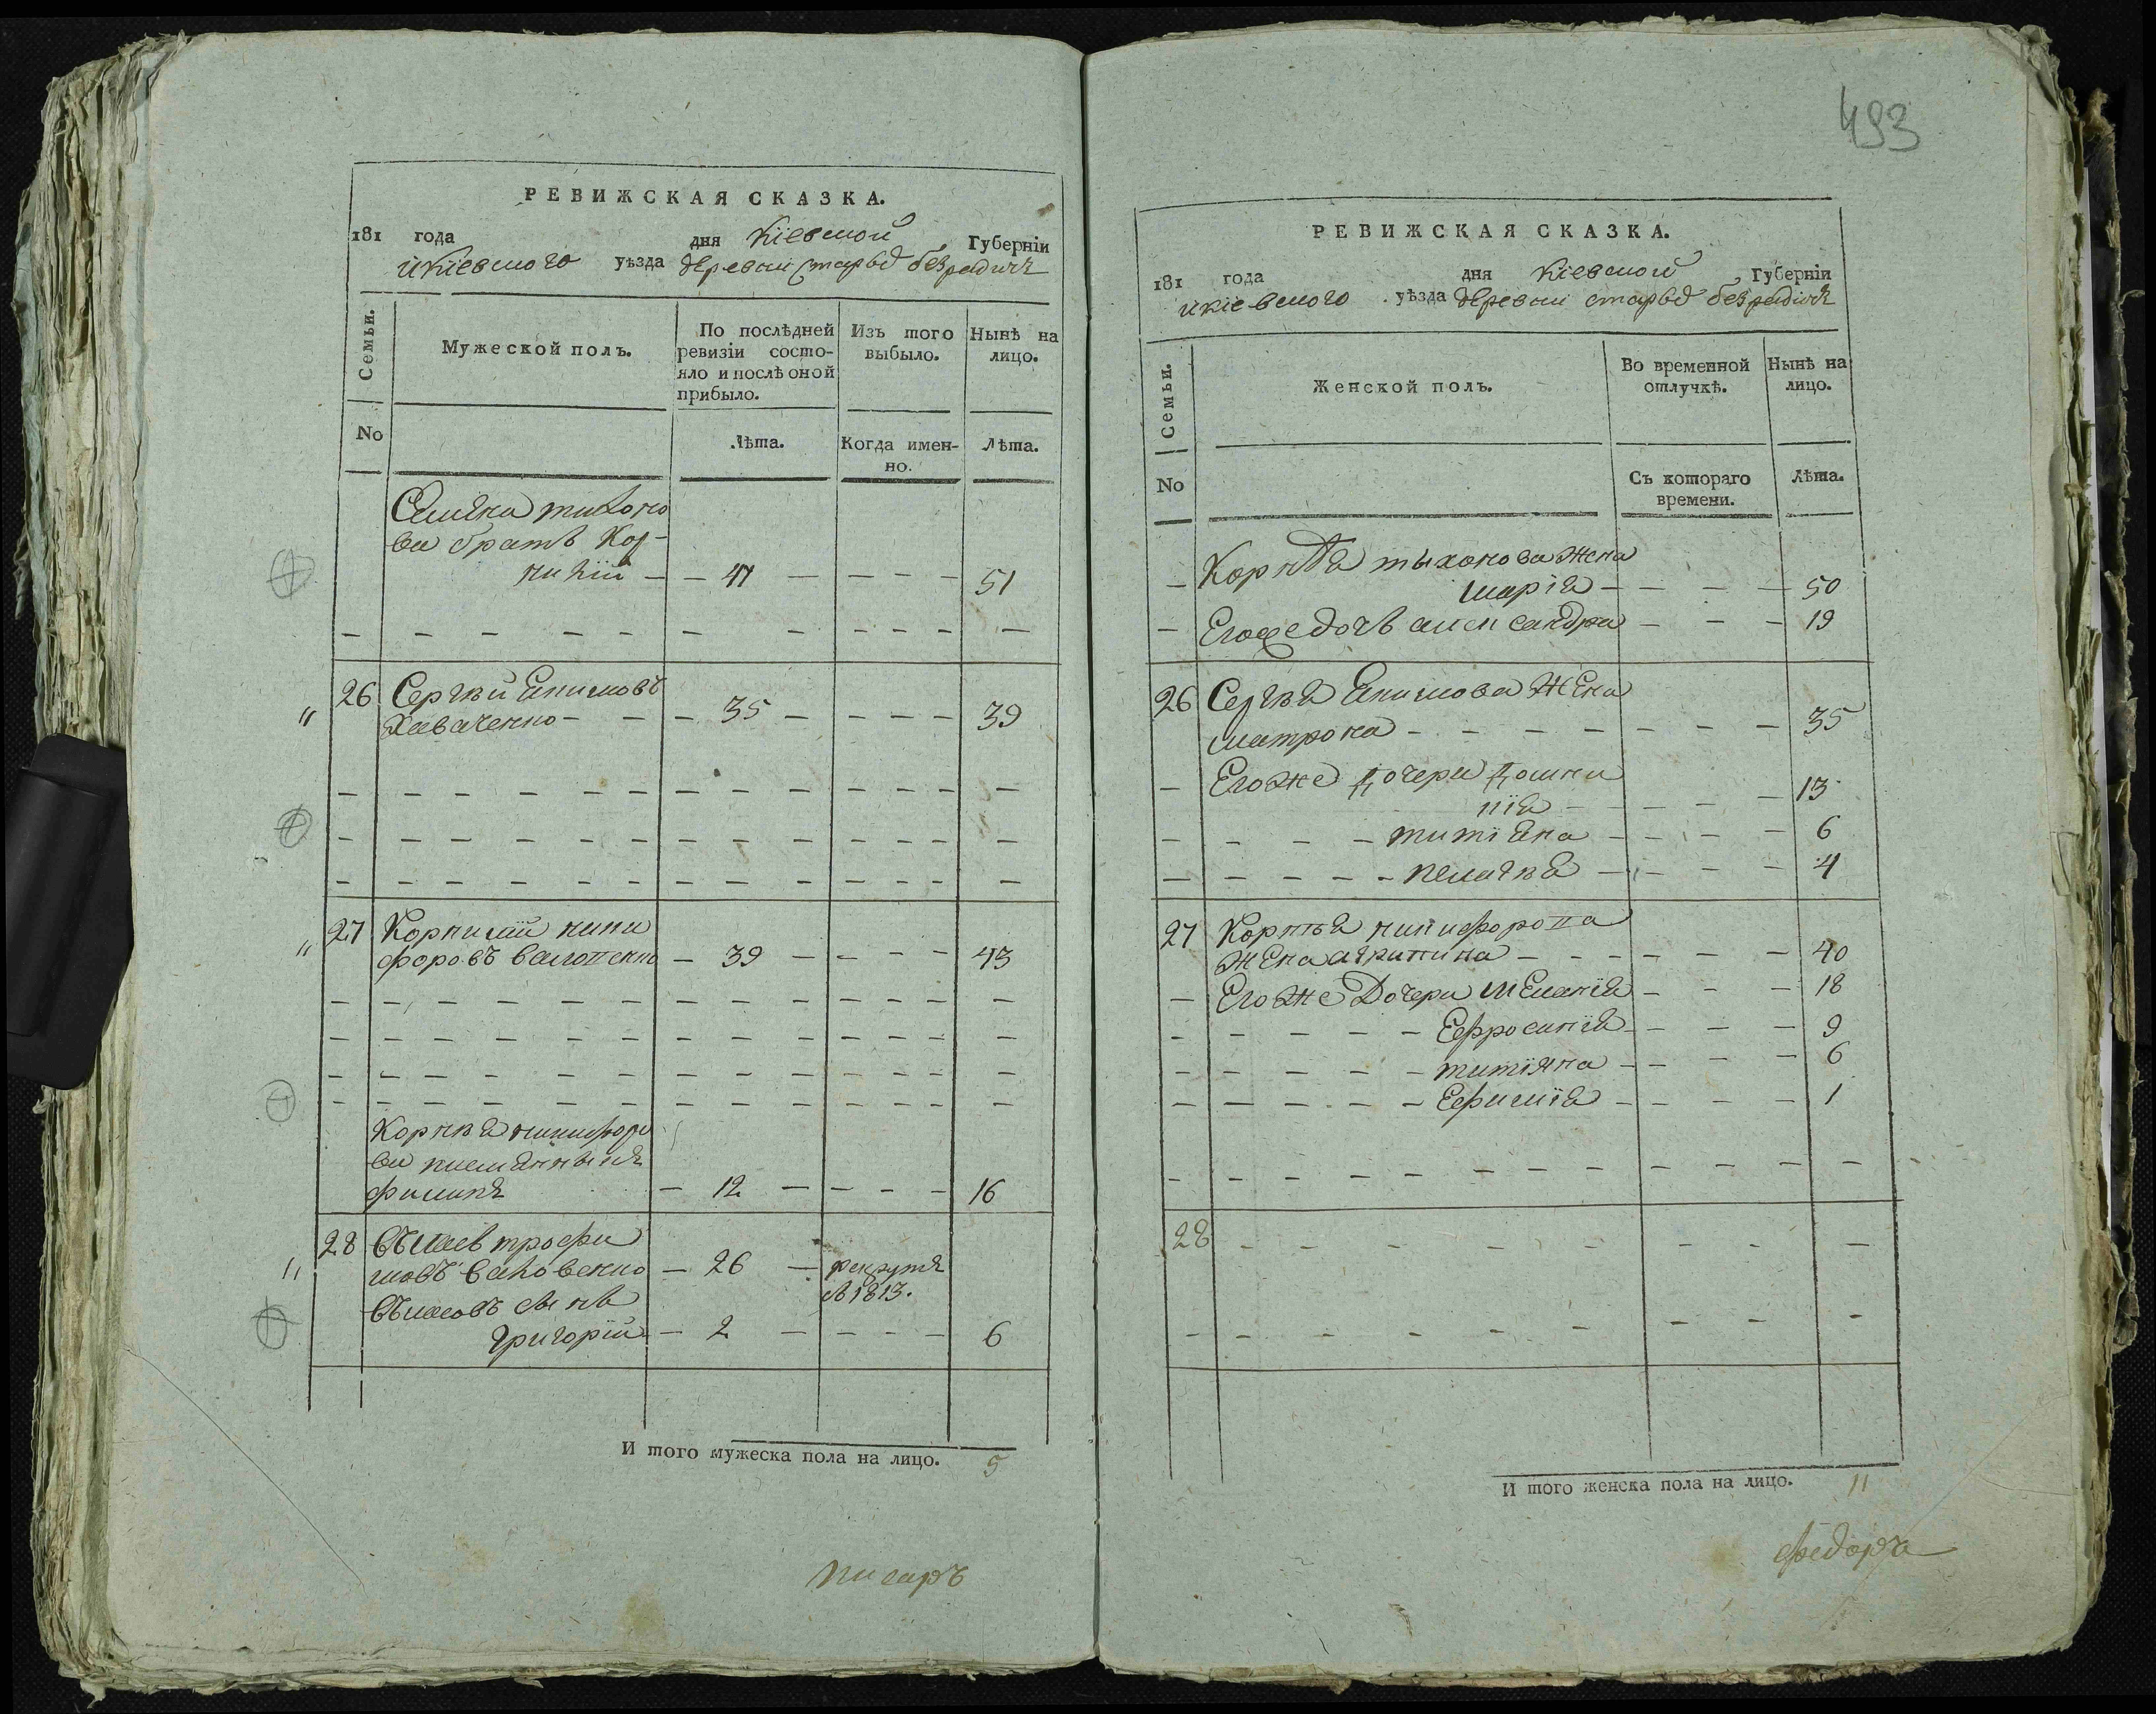 РЕВИЖСКАЯ СКАЗКА.
181 года дня Кіевской Губерніи
и Кіевского уѣзда деревни старыхъ безрадичъ
Семьи. Мужеской полъ. По послѣдней ревизіи состояло и послѣ оной прибыло. Изъ того выбыло. Нынѣ на лицо.
No Лѣта. Когда именно. Лѣта.
тихоно
ва братъ Кор-
нилій — — 47 — — — — 51
26 Сергѣй Екимовъ
— — — 35 — — — — 39
27 Корнилій ники
форовъ — 39 — — — — 43
Корнѣя никифоро
ва племянникъ
филипъ — 12 — — — — 16
28 трофи
мовъ — 26 — рекрутъ
в 1813.
сынъ
григорій — 2 — — — — 6
И того мужеска пола на лицо. 5
писаръ
493
РЕВИЖСКАЯ СКАЗКА.
181 года дня Кіевской Губерніи
и Кіевского уѣзда деревни старыхъ безрадичъ
Семьи. Женской полъ. Во временной отлучкѣ. Нынѣ на лицо.
No Съ котораго времени. Лѣта.
— Корнѣя тыхонова жена
марія — — — — 50
— Егоже дочь александра — — — 19
26 Сергѣя Екимова жена
матрона — — — — — — — 35
— Егоже дочери домни
кія — — — — 13
— — — — татіяна — — — — 6
— — — — — пелагѣя — — — — 4
27 Корнѣя никифорова
жена агрипина — — — — — — 40
— Егоже Дочери меланія — — — 18
— — — — — Ефросинія — — — 9
— — — — — татіяна — — — — 6
— — — — — Ефимія — — — — 1
28 — — — — — — — — —
И того женска пола на лицо. 11
федоръ